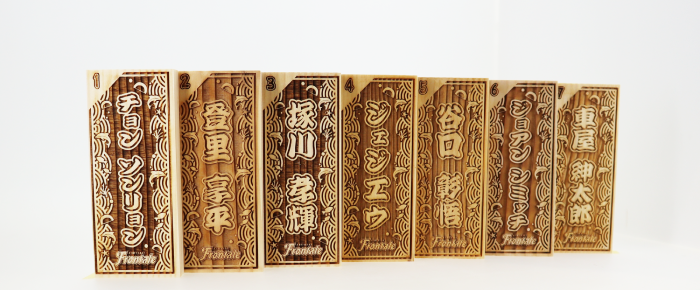 1
チョン ソンリョン
Frontale
2
登里 享平
Frontale
3
塚川 孝輝
Frontale
4
ジェジエウ
Frontale
5
谷口 彰悟
Frontale
6
ジョアン シミッチ
Frontale
車屋 紳太郎
Frontale